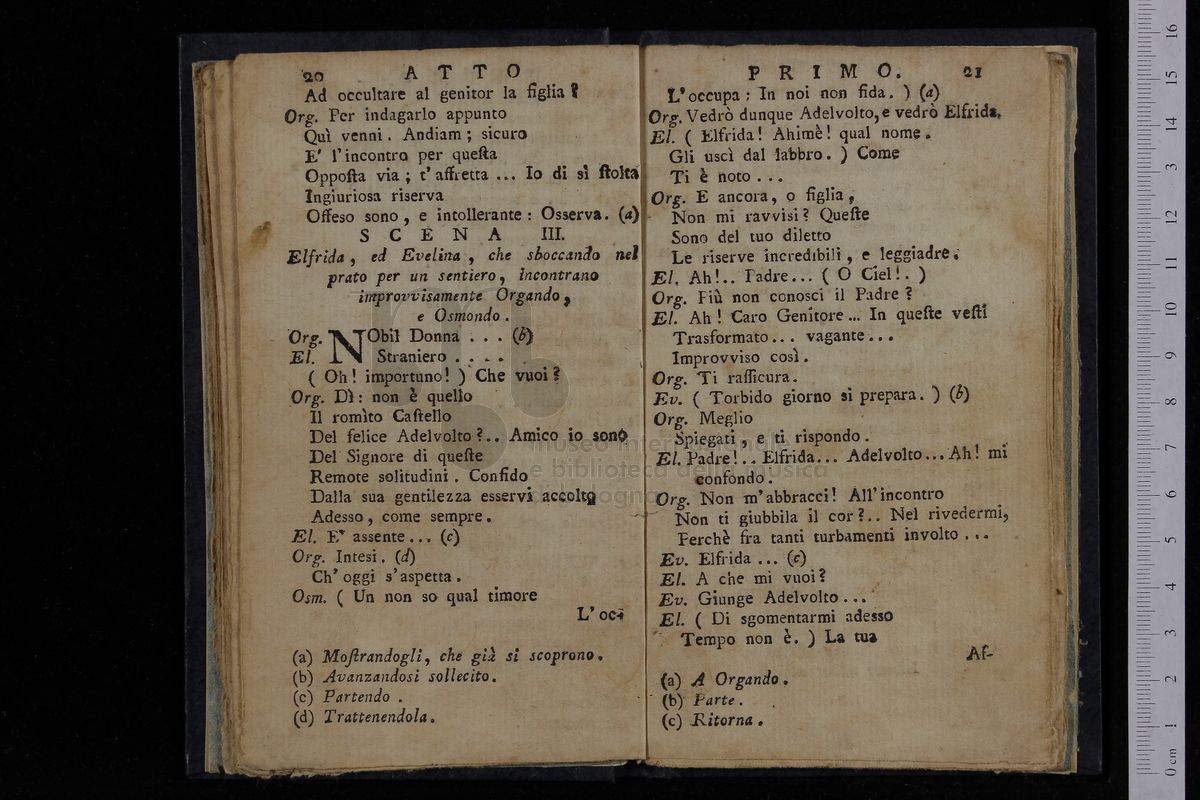 20 ATTO
Ad occultare al genitor la figlia?
Org. Per indagarlo appunto
Quì venni. Andiam; sicuro
E' l'incontro per queſta
Oppoſta via; t'affretta ... Io di sì ſtolta
Ingiuriosa riserva
Offeso sono, e intollerante: Osserva. (a)
SCENA III.
Elfrida, ed Evelina, che sboccando nel
prato per un sentiero, incontrano
improvvisamente Orgando,
e Osmondo.
Org. NObil Donna . . . (b)
El. Straniero . . . .
( Oh! importuno! ) Che vuoi?
Org. Dì: non è quello
Il romìto Caſtello
Del felice Adelvolto?.. Amico io sono
Del Signore di queſte
Remote solitudini. Confido
Dalla sua gentilezza esservi accolto
Adesso, come sempre.
El. E' assente... (c)
Org. Intesi. (d)
Ch'oggi s'aspetta.
Osm. ( Un non so qual timore
L'oc-
(a) Moſtrandogli, che già si scoprono.
(b) Avanzandosi sollecito.
(c) Partendo.
(d) Trattenendola.
PRIMO. 21
L'occupa: In noi non fida. ) (a)
Org. Vedrò dunque Adelvolto, e vedrò Elfrida.
El. ( Elfrida! Ahimè! qual nome.
Gli uscì dal labbro. ) Come
Ti è noto ...
Org. E ancora, o figlia,
Non mi ravvisi? Queſte
Sono del tuo diletto
Le riserve incredibili, e leggiadre.
El. Ah!.. Padre... ( O Ciel!. )
Org. Più non conosci il Padre?
El. Ah! Caro Genitore ... In queſte veſti
Trasformato... vagante...
Improvviso così.
Org. Ti rassicura.
Ev. ( Torbido giorno si prepara. ) (b)
Org. Meglio
Spiegati, e ti rispondo.
El. Padre!.. Elfrida... Adelvolto... Ah! mi
confondo.
Org. Non m'abbracci! All'incontro
Non ti giubbila il cor?.. Nel rivedermi,
Perchè fra tanti turbamenti involto ...
Ev. Elfrida ... (c)
El. A che mi vuoi?
Ev. Giunge Adelvolto...
El. ( Di sgomentarmi adesso
Tempo non è. ) La tua
Af-
(a) A Orgando.
(b) Parte.
(c) Ritorna.
museo internazionale
e biblioteca della musica
di bologna
0 cm 1 2 3 4 5 6 7 8 9 10 11 12 13 14 15 16